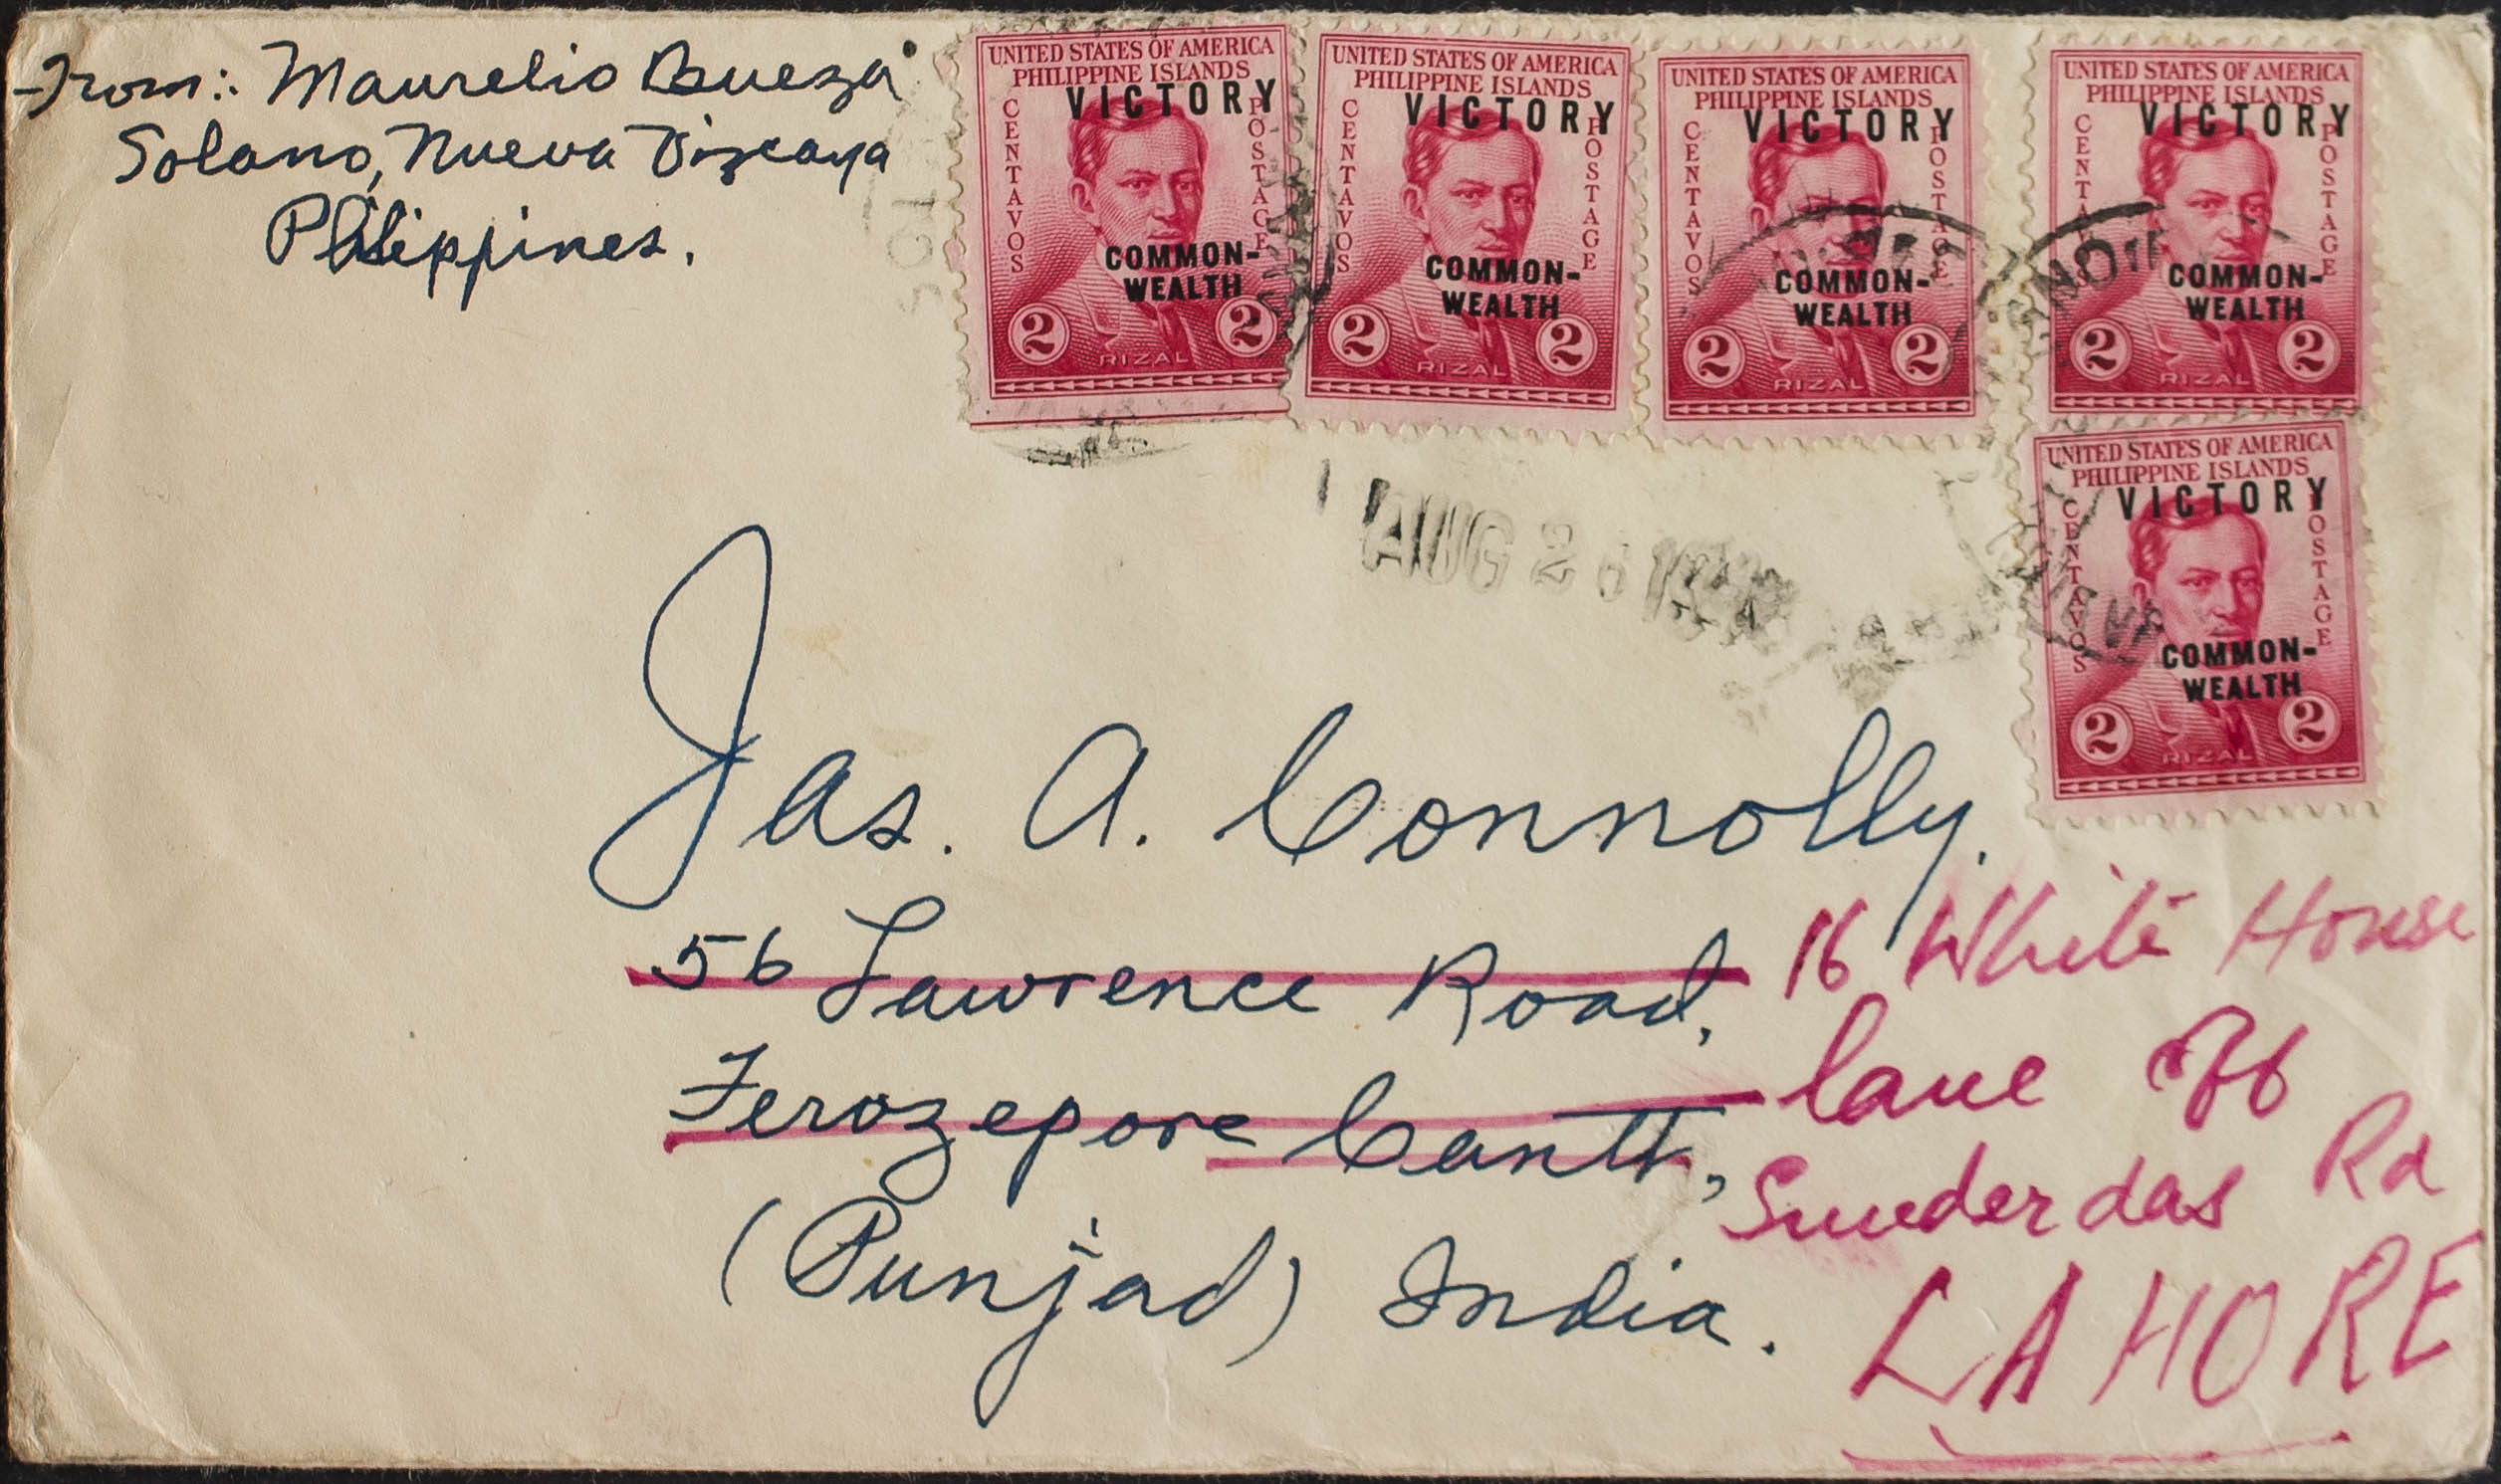 From: Maurelio Bueza
Solano, Nueva Vizcaya
Philippines.
UNITED STATES OF AMERICA
PHILIPPINE ISLANDS
VICTORY
CENTAVOS
POSTAGE
COMMON-
WEALTH
2 2
RIZAL
UNITED STATES OF AMERICA
PHILIPPINE ISLANDS
VICTORY
CENTAVOS
POSTAGE
COMMON-
WEALTH
2 2
RIZAL
UNITED STATES OF AMERICA
PHILIPPINE ISLANDS
VICTORY
CENTAVOS
POSTAGE
COMMON-
WEALTH
2 2
RIZAL
UNITED STATES OF AMERICA
PHILIPPINE ISLANDS
VICTORY
CENTAVOS
POSTAGE
COMMON-
WEALTH
2 2
RIZAL
UNITED STATES OF AMERICA
PHILIPPINE ISLANDS
VICTORY
CENTAVOS
POSTAGE
COMMON-
WEALTH
2 2
RIZAL
AUG 26
Jas. A. Connolly.
56 Lawrence Road,
Ferozepore Cantt,
(Punjad) India.
16 White House
lane Off
Sunderdas Rd
LAHORE